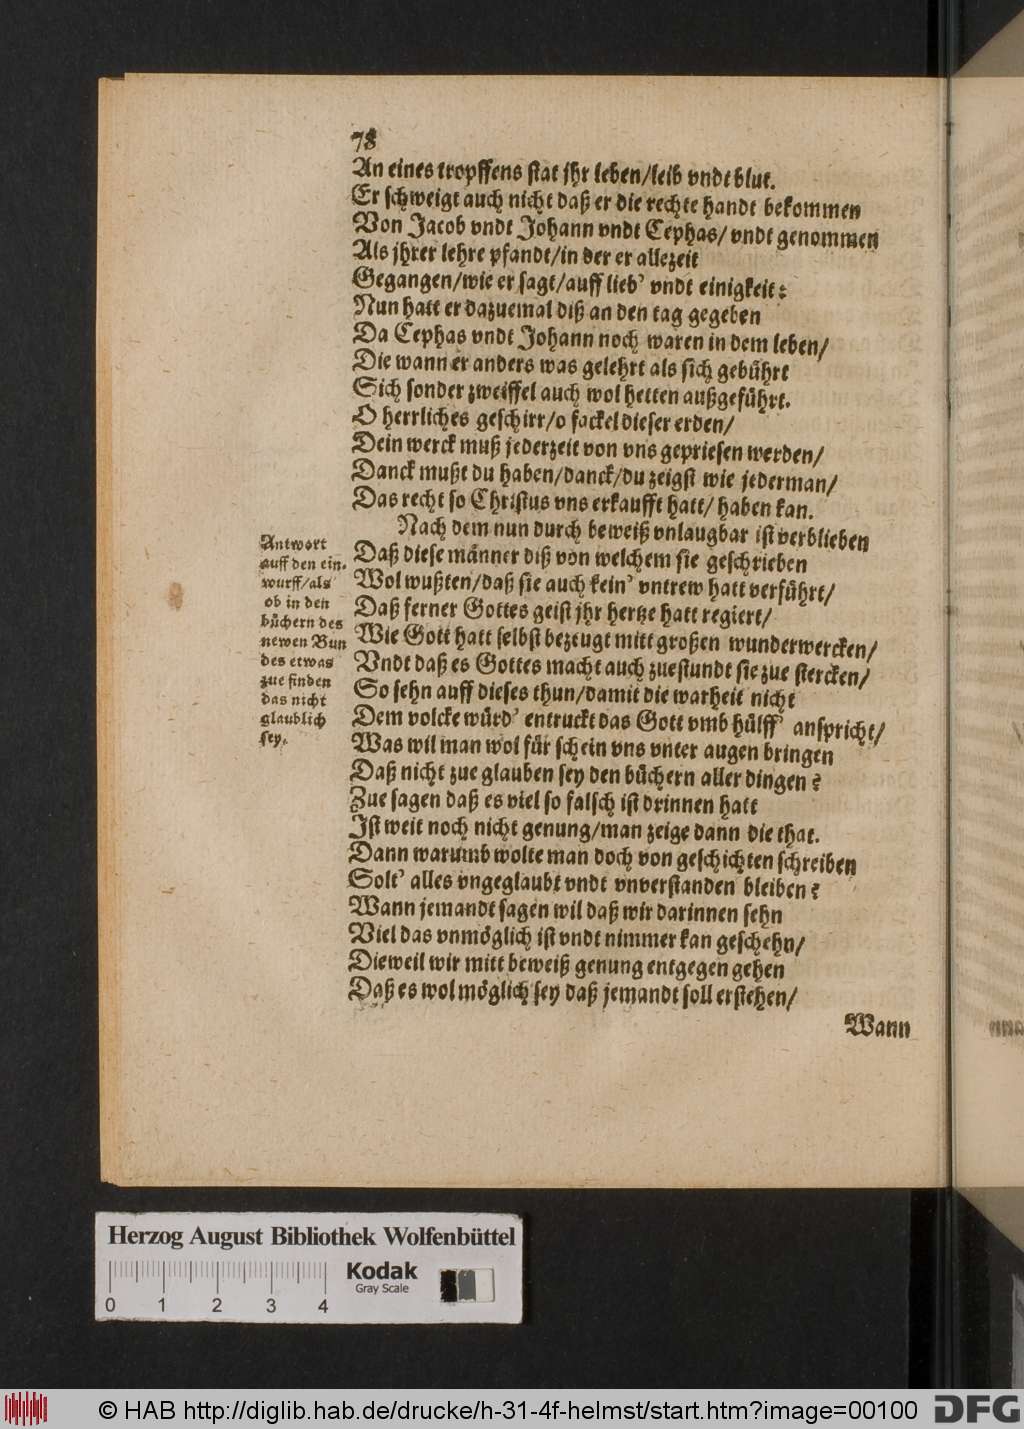 78
An eines tropffens stat jhr leben/leib vndt blut.
Er schweigt auch nicht daß er die rechte handt bekommen
Von Jacob vndt Johann vndt Cephas/ vndt genommen
Als jhrer lehre pfandt/in der er allezeit
Gegangen/wie er sagt/auff lieb' vndt einigkeit:
Nun hatt er dazuemal diß an den tag gegeben
Da Cephas vndt Johann noch waren in dem leben/
Die wann er anders was gelehrt als sich gebührt
Sich sonder zweiffel auch wol hetten außgeführt.
O herrliches geschirr/o fackel dieser erden/
Dein werck muß jederzeit von vns gepriesen werden/
Danck mußt du haben/danck/du zeigst wie jederman/
Das recht so Christus vns erkaufft hatt/ haben kan.
Nach dem nun durch beweiß vnlaugbar ist verblieben
Daß diese männer diß von welchem sie geschrieben
Wol wußten/daß sie auch kein' vntrew hatt verführt/
Daß ferner Gottes geist jhr hertze hatt regiert/
Wie Gott hatt selbst bezeugt mitt großen wunderwercken/
Vndt daß es Gottes macht auch zuestundt sie zue stercken/
So sehn auff dieses thun/damit die warheit nicht
Dem volcke würd' entruckt das Gott vmb hülff' anspricht/
Was wil man wol für schein vns vnter augen bringen
Daß nicht zue glauben sey den büchern aller dingen?
Zue sagen daß es viel so falsch ist drinnen hatt
Ist weit noch nicht genung/man zeige dann die that.
Dann warumb wolte man doch von geschichten schreiben
Solt' alles vngeglaubt vndt vnverstanden bleiben?
Wann jemandt sagen wil daß wir darinnen sehn
Viel das vnmöglich ist vndt nimmer kan geschehn/
Dieweil wir mitt beweiß genung entgegen gehen
Daß es wol möglich sey daß jemandt soll erstehen/
Wann
Antwort
auff den ein-
wurff/als
ob in den
büchern des
newen Bun
des etwas
zue finden
das nicht
glaublich
sey.
Herzog August Bibliothek Wolfenbüttel
Kodak
Gray Scale
0 1 2 3 4
© HAB http://diglib.hab.de/drucke/h-31-4f-helmst/start.htm?image=00100
DFG